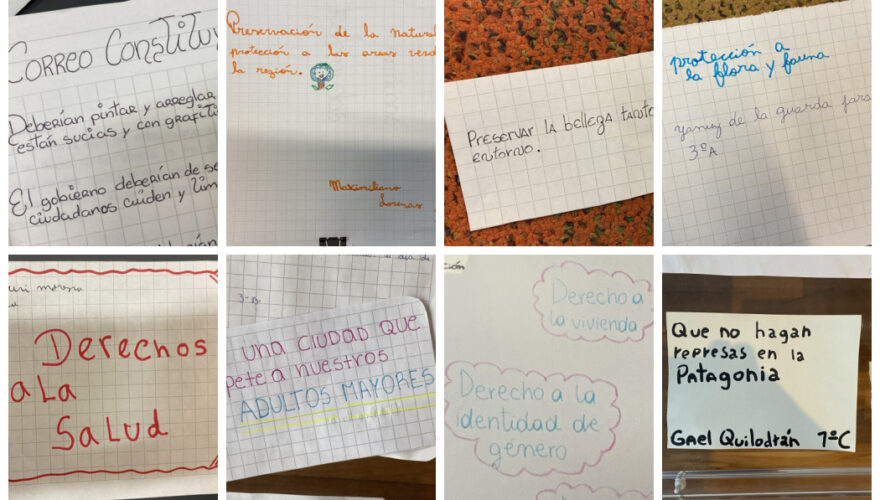 CORREO
Deberían pintar y arreglar
están sucias y con
El gobierno deberían de
ciudadanos cuiden y
Preservación de la
protección a las areas
la región.
Maximiliano
Preservar la belleza
entorno.
protección a
la flora y fauna
de la guarda
3ºA
Derechos
a La
Salud
3-B.
una ciudad que
a nuestros
ADULTOS MAYORES
Derecho a
la vivienda
Derecho a la
identidad de
género
Que no hagan
represas en la
Patagonia
Gael Quilodrán 7ºC